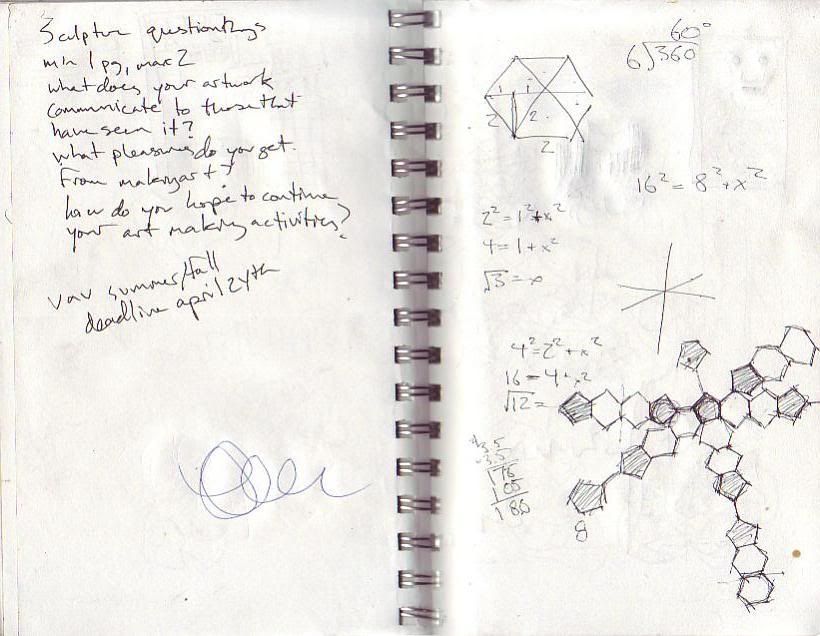 Sculpture questionthings
min 1 pg, max 2
what does your artwork
communicate to those that
have seen it?
what pleasures do you get
from making art?
how do you hope to continue
your art making activities?
vav summer/fall
deadline april 24th
60°
6)360
1 1
2 2
2
16² = 8² + x²
2² = 1² + x²
4 = 1 + x²
√3 = x
4² = 2² + x²
16 = 4 + x²
√12 =
8